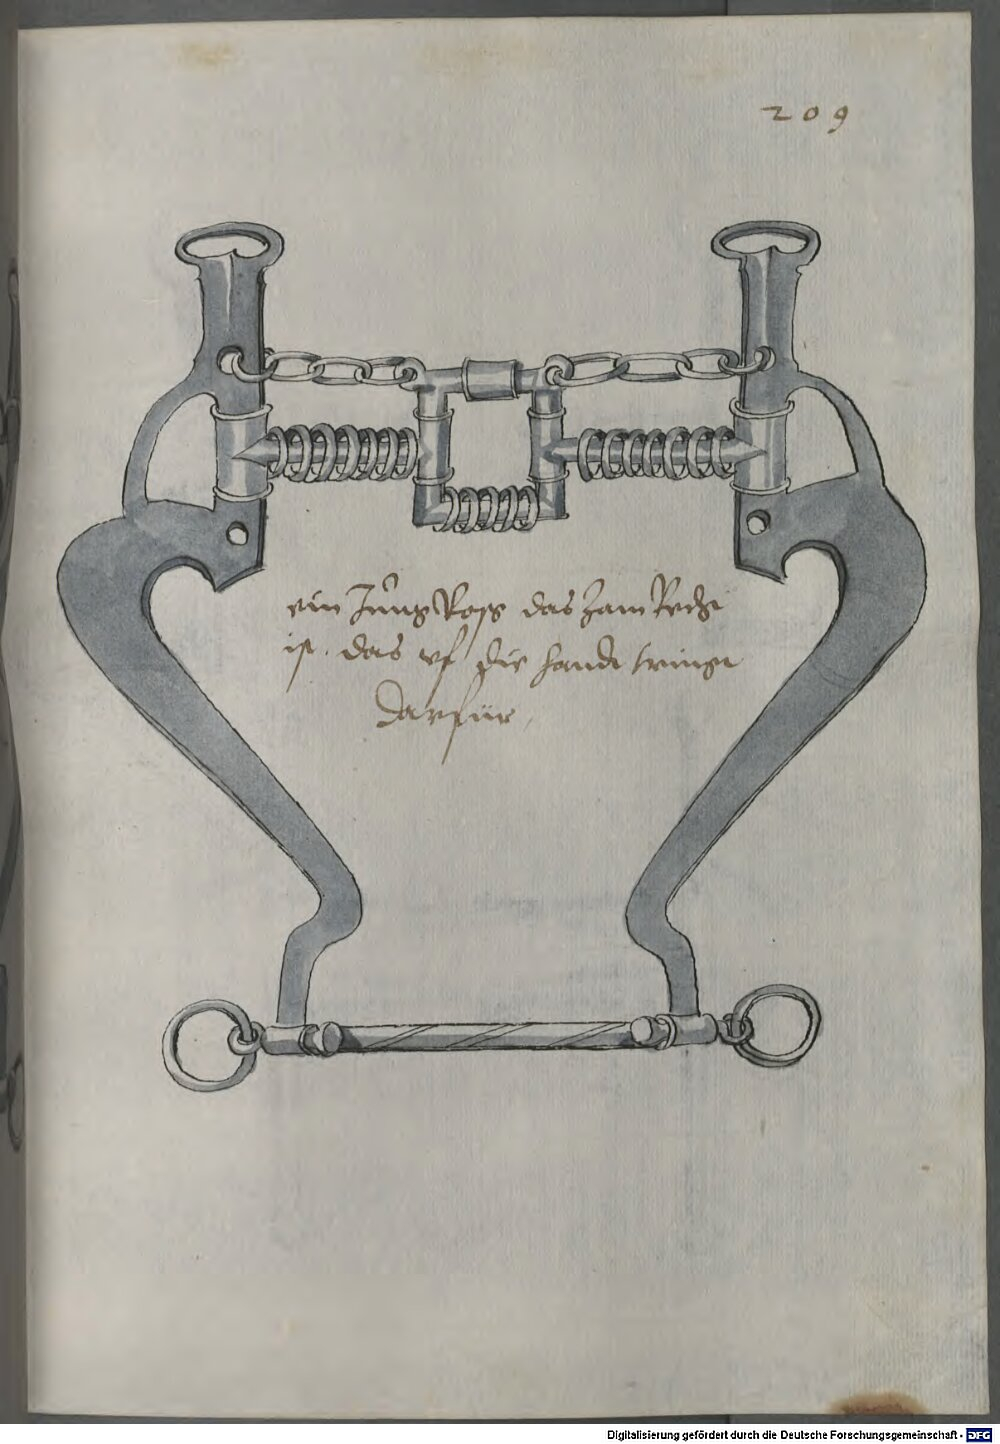 209
ein Jung Ross das Zam Recht
ist. das uf die handt tringt
darfür
Digitalisierung gefördert durch die Deutsche Forschungsgemeinschaft - DFG